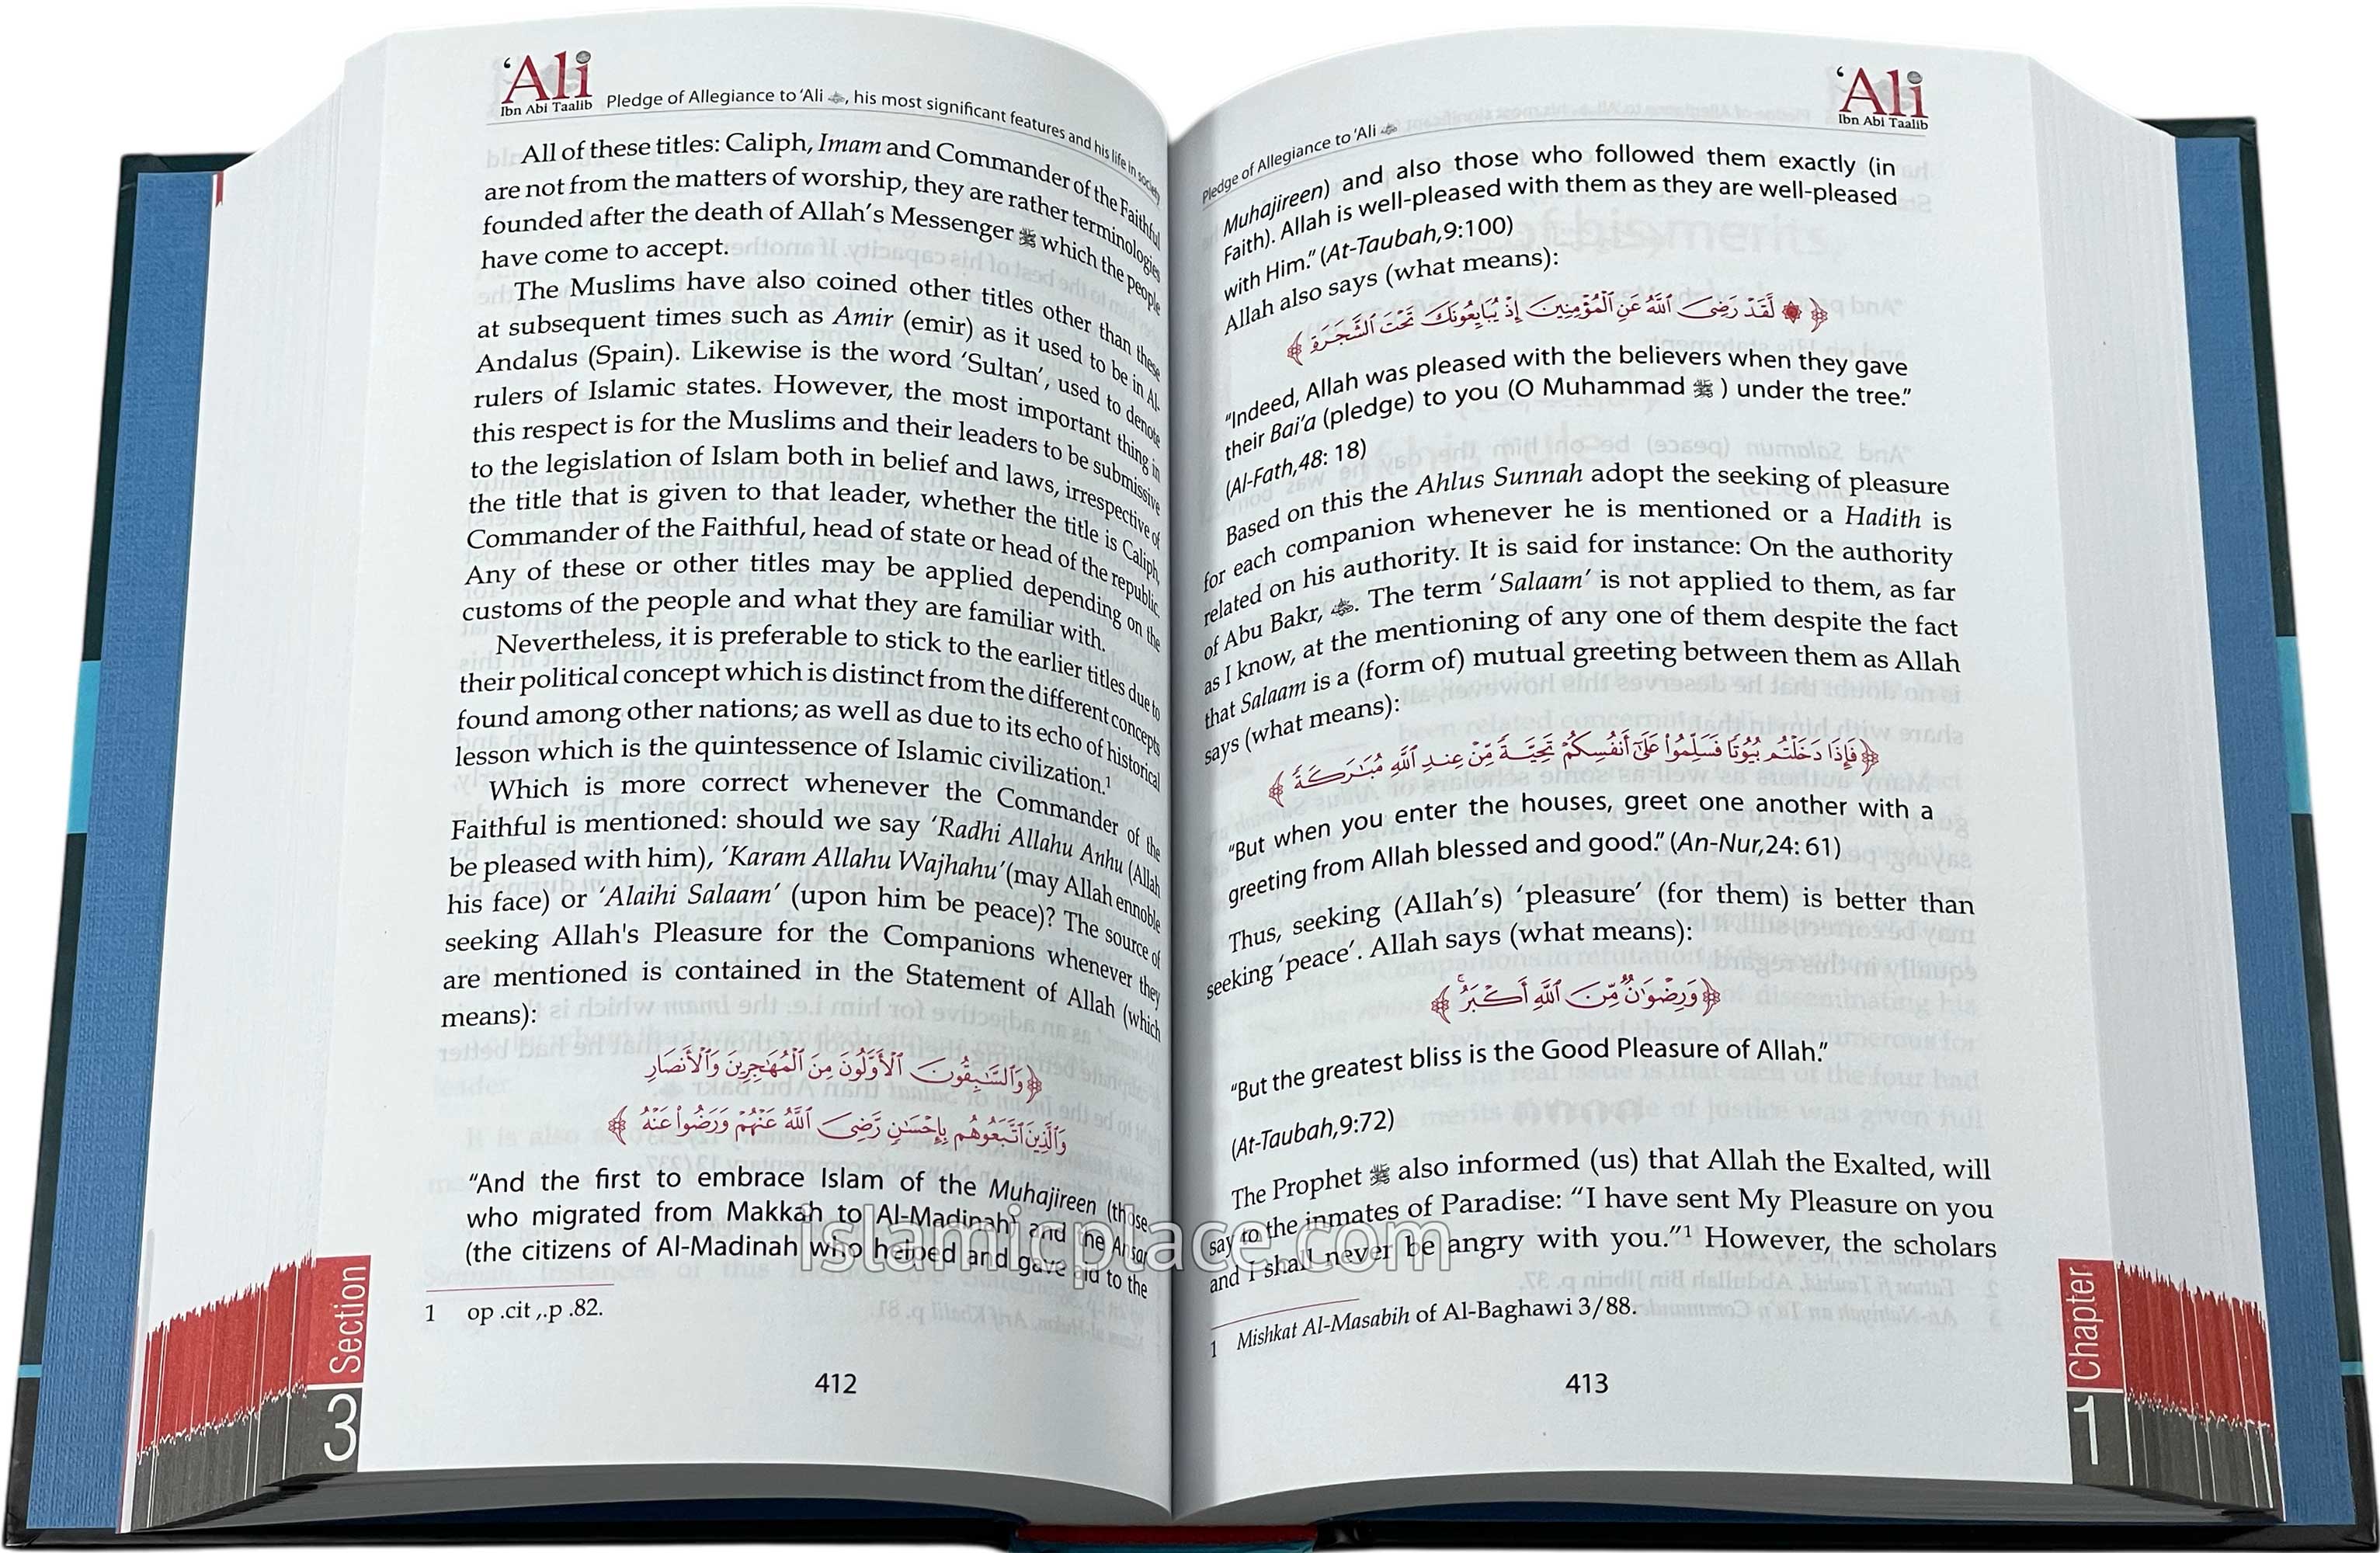 ‘Ali
Ibn Abi Taalib
Pledge of Allegiance to ‘Ali ؓ, his most significant features and his life in society
All of these titles: Caliph, Imam and Commander of the Faithful
are not from the matters of worship, they are rather terminologies
founded after the death of Allah’s Messenger ﷺ which the people
have come to accept.
The Muslims have also coined other titles other than these
at subsequent times such as Amir (emir) as it used to be in Al-
Andalus (Spain). Likewise is the word ‘Sultan’, used to denote
rulers of Islamic states. However, the most important thing in
this respect is for the Muslims and their leaders to be submissive
to the legislation of Islam both in belief and laws, irrespective of
the title that is given to that leader, whether the title is Caliph,
Commander of the Faithful, head of state or head of the republic.
Any of these or other titles may be applied depending on the
customs of the people and what they are familiar with.
Nevertheless, it is preferable to stick to the earlier titles due to
their political concept which is distinct from the different concepts
found among other nations; as well as due to its echo of historical
lesson which is the quintessence of Islamic civilization.¹
Which is more correct whenever the Commander of the
Faithful is mentioned: should we say ‘Radhi Allahu Anhu (Allah
be pleased with him), ‘Karam Allahu Wajhahu’ (may Allah ennoble
his face) or ‘Alaihi Salaam’ (upon him be peace)? The source of
seeking Allah's Pleasure for the Companions whenever they
are mentioned is contained in the Statement of Allah (which
means):
﴿وَٱلسَّٰبِقُونَ ٱلْأَوَّلُونَ مِنَ ٱلْمُهَٰجِرِينَ وَٱلْأَنصَارِ
وَٱلَّذِينَ ٱتَّبَعُوهُم بِإِحْسَٰنٍ رَّضِىَ ٱللَّهُ عَنْهُمْ وَرَضُوا۟ عَنْهُ﴾
“And the first to embrace Islam of the Muhajireen (those
who migrated from Makkah to Al-Madinah) and the Ansar
(the citizens of Al-Madinah who helped and gave aid to the
1 op .cit ,.p .82.
412
Section
3
‘Ali
Ibn Abi Taalib
Pledge of Allegiance to ‘Ali ؓ
Muhajireen) and also those who followed them exactly (in
Faith). Allah is well-pleased with them as they are well-pleased
with Him.” (At-Taubah,9:100)
Allah also says (what means):
﴿۞ لَّقَدْ رَضِىَ ٱللَّهُ عَنِ ٱلْمُؤْمِنِينَ إِذْ يُبَايِعُونَكَ تَحْتَ ٱلشَّجَرَةِ﴾
“Indeed, Allah was pleased with the believers when they gave
their Bai’a (pledge) to you (O Muhammad ﷺ ) under the tree.”
(Al-Fath,48: 18)
Based on this the Ahlus Sunnah adopt the seeking of pleasure
for each companion whenever he is mentioned or a Hadith is
related on his authority. It is said for instance: On the authority
of Abu Bakr, ؓ. The term ‘Salaam’ is not applied to them, as far
as I know, at the mentioning of any one of them despite the fact
that Salaam is a (form of) mutual greeting between them as Allah
says (what means):
﴿فَإِذَا دَخَلْتُم بُيُوتًا فَسَلِّمُوا۟ عَلَىٰٓ أَنفُسِكُمْ تَحِيَّةً مِّنْ عِندِ ٱللَّهِ مُبَٰرَكَةً﴾
“But when you enter the houses, greet one another with a
greeting from Allah blessed and good.” (An-Nur,24: 61)
Thus, seeking (Allah’s) ‘pleasure’ (for them) is better than
seeking ‘peace’. Allah says (what means):
﴿وَرِضْوَٰنٌ مِّنَ ٱللَّهِ أَكْبَرُ ۚ﴾
“But the greatest bliss is the Good Pleasure of Allah.”
(At-Taubah,9:72)
The Prophet ﷺ also informed (us) that Allah the Exalted, will
say to the inmates of Paradise: “I have sent My Pleasure on you
and I shall never be angry with you.”¹ However, the scholars
1 Mishkat Al-Masabih of Al-Baghawi 3/88.
413
Chapter
1
islamicplace.com